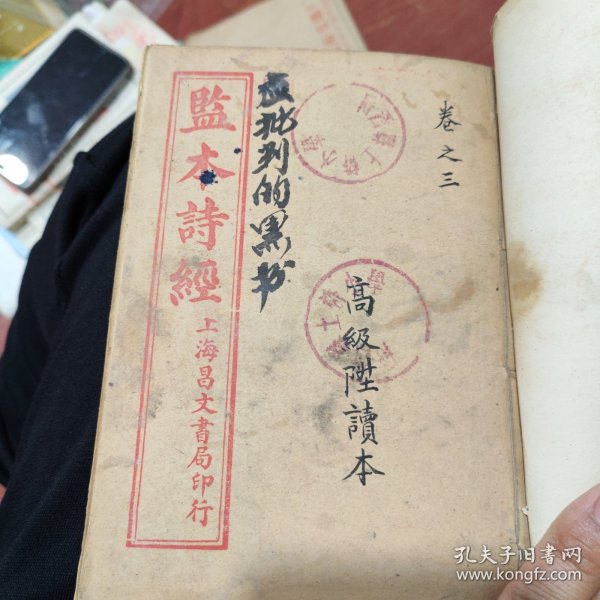 卷之三
高級陞讀本
批判的黑书
監本詩經
上海昌文書局印行
孔夫子旧书网
www.kongfz.com